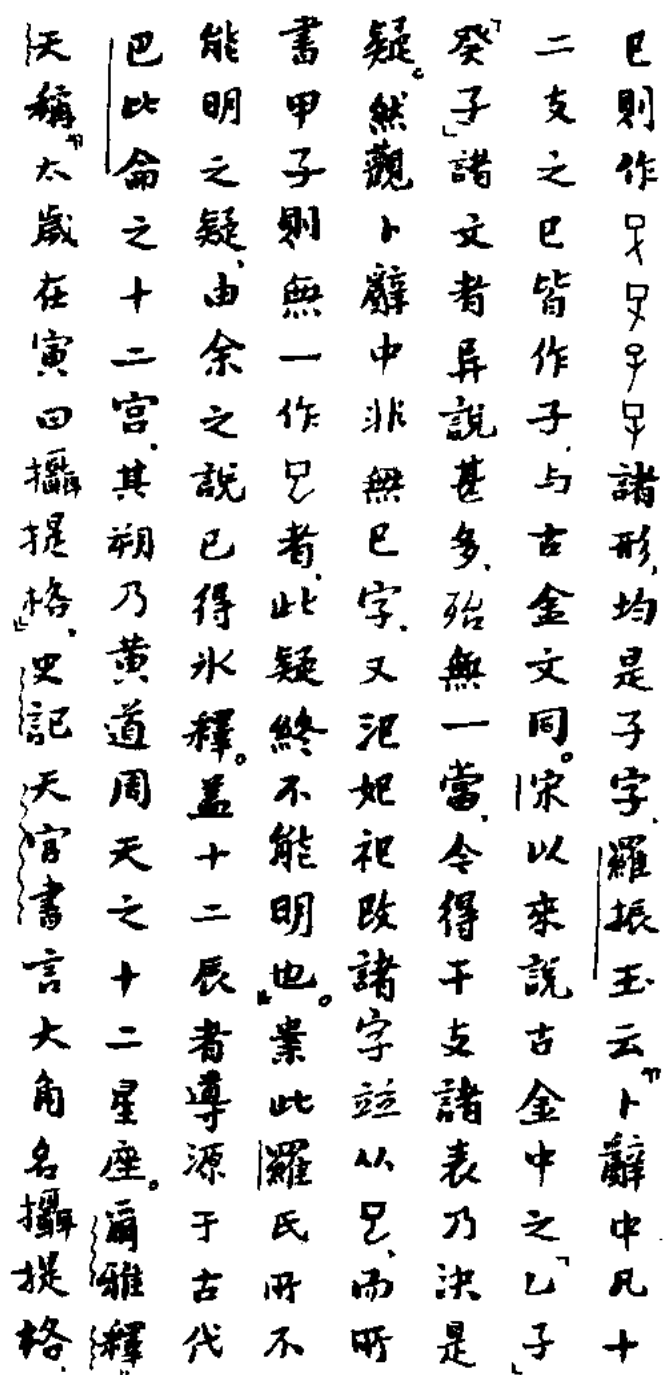 巳則作諸形，均是子字，羅振玉云『卜辭中凡十
二支之巳皆作子，与古金文同。宋以來說古金中之「乙子」
「癸子」諸文者异說甚多，殆無一當，今得干支諸表乃決是
疑。然觀卜辭中非無巳字，又汜妃祀改諸字並从㠯，而所
書甲子則無一作㠯者，此疑終不能明也』。業此羅氏所不
能明之疑，由余之說已得氷釋。盖十二辰者導源于古代
巴比侖之十二宫，其朔乃黄道周天之十二星座。爾雅釋
天稱『太歲在寅曰攝提格』，史記天官書言大角名攝提格，